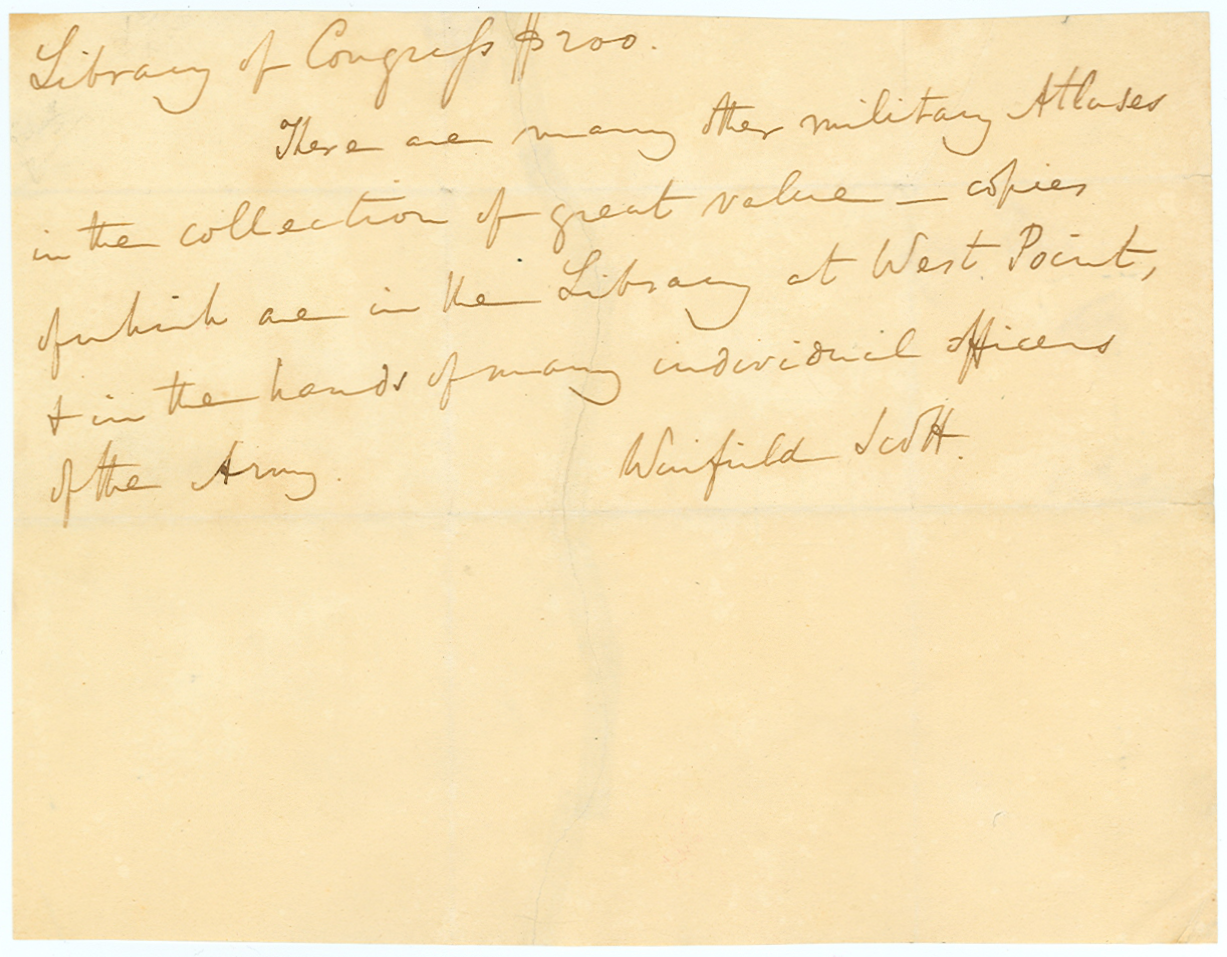 Library of Congress $200.
There are many other military Atlases
in the collection of great value — copies
of which are in the Library at West Point,
& in the hands of many individuil officers
of the Army.
Winfield Scott.